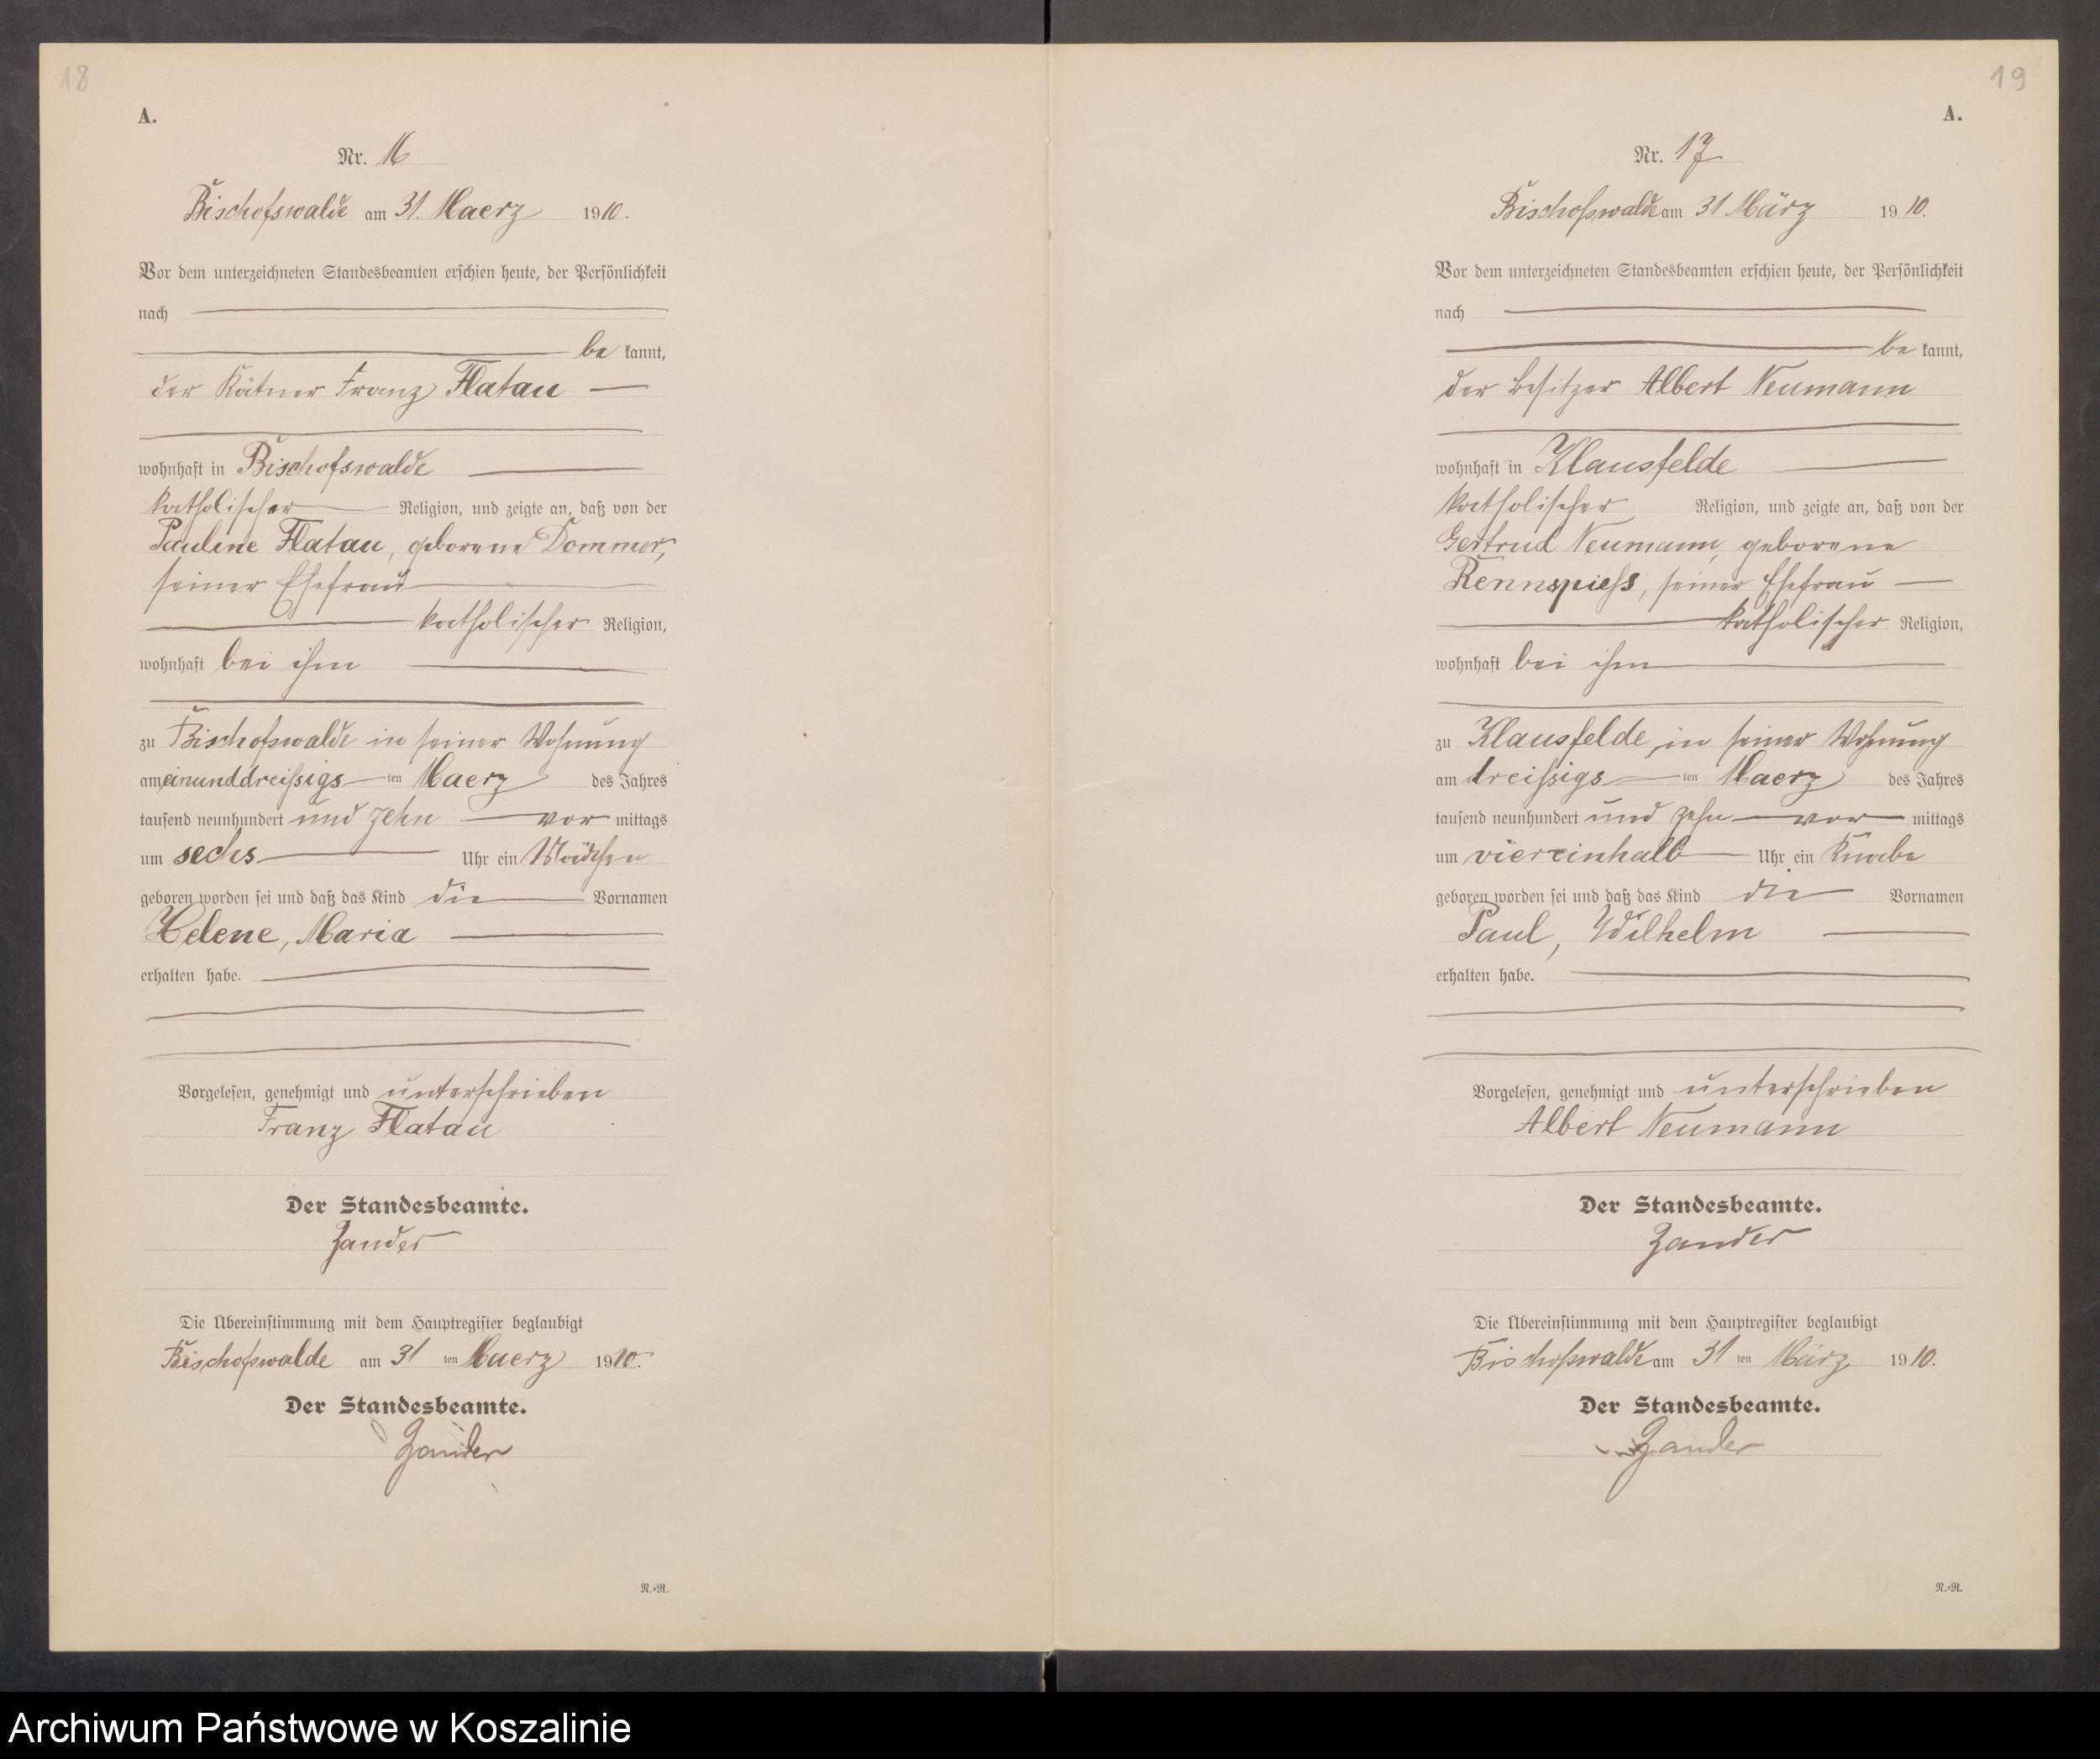 18
A.
Nr. 16
Bischofswalde am 31. Maerz 1910.
Vor dem unterzeichneten Standesbeamten erschien heute, der Persönlichkeit
nach
be kannt,
der Kätner Franz Flatau
wohnhaft in Bischofswalde
katholischer Religion, und zeigte an, daß von der
Pauline Flatau, geborene Dommer,
seiner Ehefrau
katholischer Religion,
wohnhaft bei ihm
zu Bischofswalde in seiner Wohnung
am einunddreißigs ten Maerz des Jahres
tausend neunhundert und zehn vor mittags
um sechs Uhr ein Mädchen
geboren worden sei und daß das Kind die Vornamen
Helene, Maria
erhalten habe.
Vorgelesen, genehmigt und unterschrieben
Franz Flatau
Der Standesbeamte.
Zander
Die Übereinstimmung mit dem Hauptregister beglaubigt
Bischofswalde am 31 ten Maerz 1910.
Der Standesbeamte.
Zander
N.=N.
19
A.
Nr. 17
Bischofswalde am 31 März 1910.
Vor dem unterzeichneten Standesbeamten erschien heute, der Persönlichkeit
nach
be kannt,
der Besitzer Albert Neumann
wohnhaft in Klausfelde
katholischer Religion, und zeigte an, daß von der
Gertrud Neumann, geborene
Rennspiess, seiner Ehefrau
katholischer Religion,
wohnhaft bei ihm
zu Klausfelde, in seiner Wohnung
am dreißigs ten Maerz des Jahres
tausend neunhundert und zehn vor mittags
um viereinhalb Uhr ein Knabe
geboren worden sei und daß das Kind die Vornamen
Paul, Wilhelm
erhalten habe.
Vorgelesen, genehmigt und unterschrieben
Albert Neumann
Der Standesbeamte.
Zander
Die Übereinstimmung mit dem Hauptregister beglaubigt
Bischofswalde am 31 ten März 1910.
Der Standesbeamte.
Zander
N.=N.
Archiwum Państwowe w Koszalinie